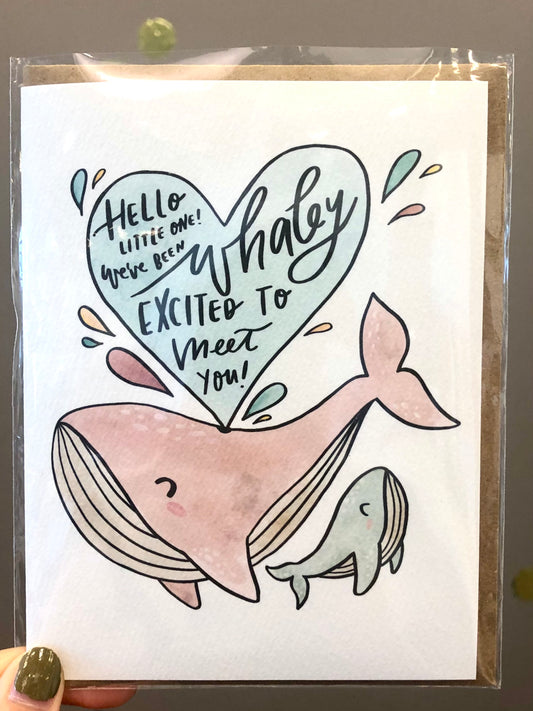 HELLO
LITTLE ONE!
We've BEEN
whaley
EXCITED TO
meet
YOU!